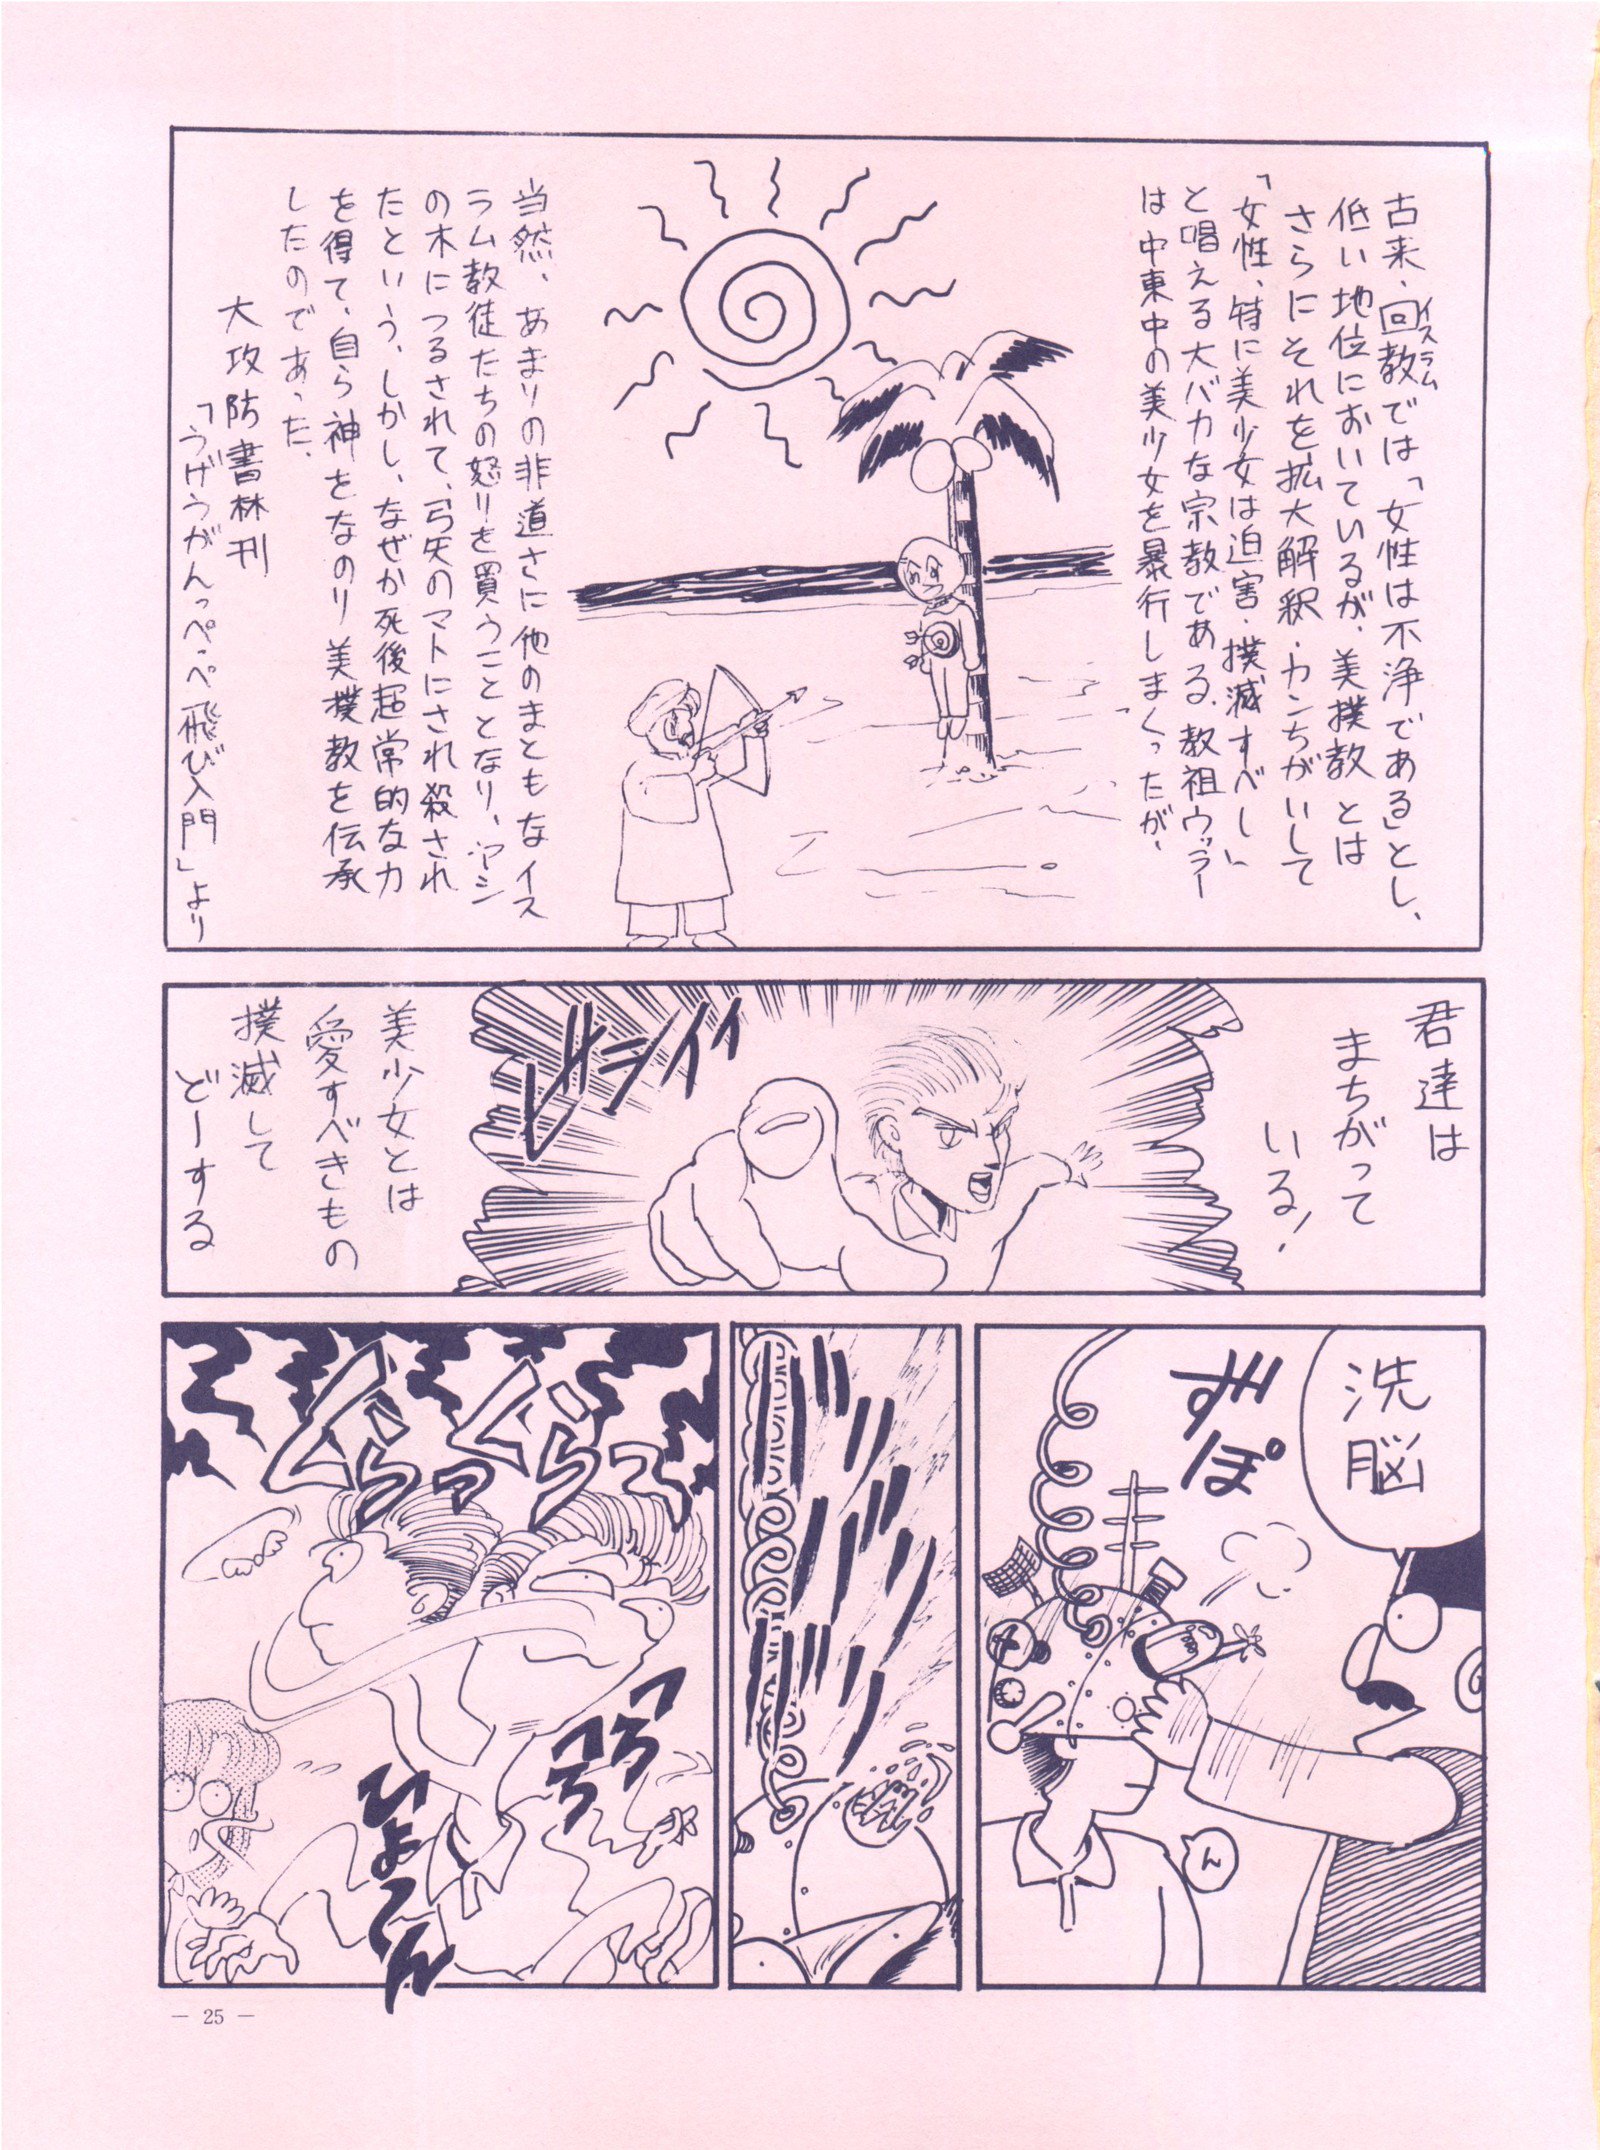 古来、回教では「女性は不浄である」とし、
イスラム
低い地位においているが、美撲教とは
さらにそれを拡大解釈・カンちがいして
「女性、特に美少女は迫害・撲滅すべし」
と唱える大バカな宗教である。教祖ウッラー
は中東中の美少女を暴行しまくったが、
当然、あまりの非道さに他のまともなイス
ラム教徒たちの怒りを買うこととなり、ヤシ
の木につるされて、弓矢のマトにされ殺され
たという。しかし、なぜか死後超常的な力
を得て、自ら神をなのり美撲教を伝承
したのであった。
大攻防書林刊
「うげうがんっぺぺ飛び入門」より
君達は
まちがって
いる!
ビシイイ
美少女とは
愛すべきもの
撲滅して
どーする
洗脳
ずぽ
ん
ぐらっぐらっ
ひょてん
— 25 —